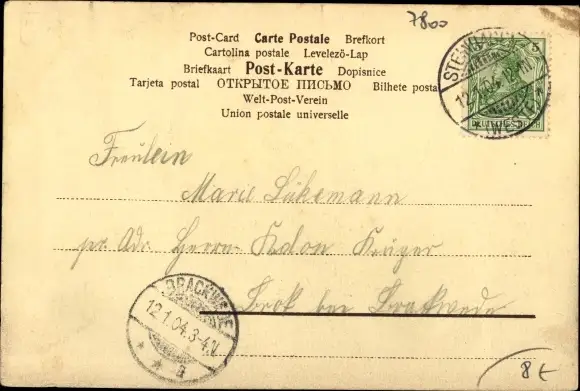 7800
Post-Card Carte Postale Brefkort
Cartolina postale Levelező-Lap
Briefkaart Post-Karte Dopisnice
Tarjeta postal ОТКРЫТОЕ ПИСЬМО Bilhete postal
Welt-Post-Verein
Union postale universelle
5
DEUTSCHES REICH
12.1.04. 12-
(WESTF.)
Fräulein
Marie Lükemann
pr. Adr. Herrn Kolon Krüger
Brock bei Brackwede
BRACKWEDE
12.1.04.3-4N
* * a
8 €